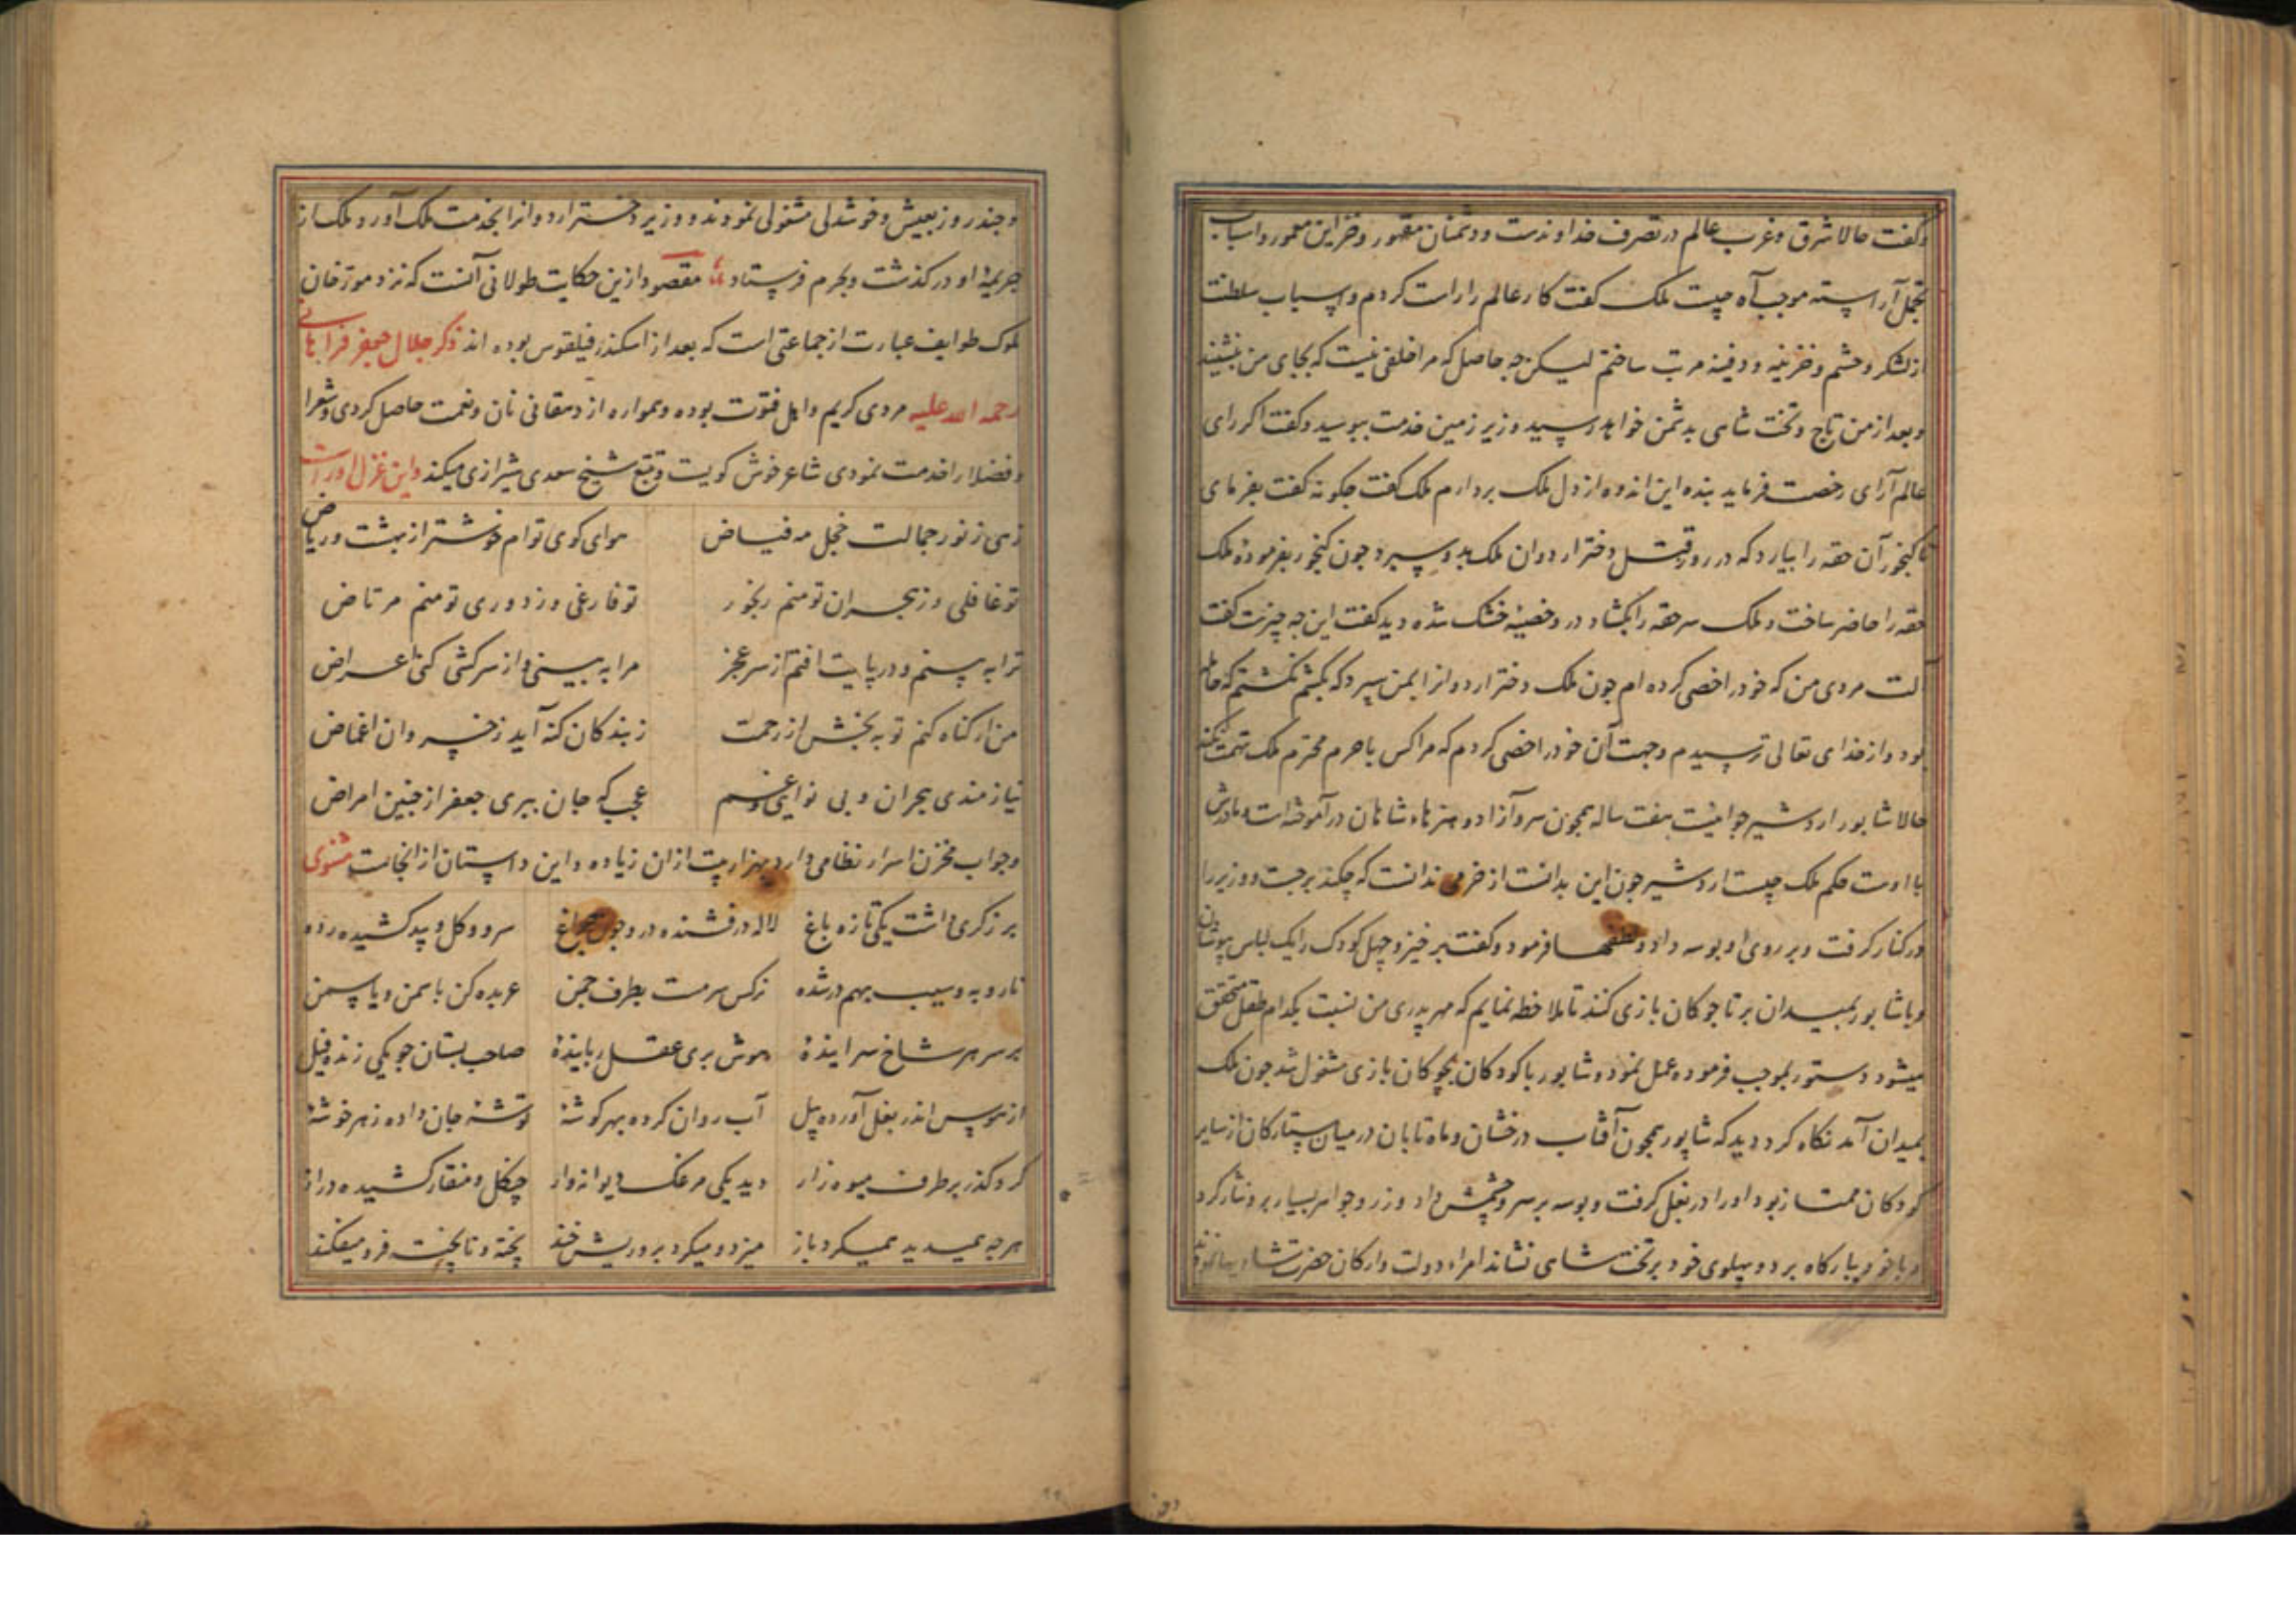 وکفت حالا شرق و غرب عالم در تصرف خداوندست و دشمنان مقهور و خزاین معمور و اسباب
تجمل آراسته موجب آه چیست ملک کفت کار عالم را راست کردم و اسباب سلطنت
از لشکر و حشم و خزینه و دفینه مرتب ساختم لیکن چه حاصل که مرا خلفی نیست که بجای من بنشیند
و بعد از من تاج و تخت شاهی بدشمن خواهد رسید وزیر زمین خدمت ببوسید و کفت اکر رای
عالم آرای رخصت فرماید بنده این اندوه از دل ملک بردارم ملک کفت جکونه کفت بفرمای
تا کنجور آن حقه را بیارد که در روز قتل دختر اردوان ملک بدو سپرد جون کنجور بفرموده ملک
حقه را حاضر ساخت و ملک سر حقه را بکشاد در و خصیه خشک شده دید کفت این جه چیزست کفت
آلت مردی من که خود را خصی کرده ام جون ملک دختر اردوانرا بمن سپرد که بکشم نکشتم که حامله
بود و از خدای تعالی ترسیدم و جهت آن خود را خصی کردم که مرا کس با حرم محترم ملک تهمت نکند
حالا شابور اردشیر جوانیست هفت ساله همچون سرو آزاد و هنرهاء شاهان در آموخته است و مادرش
با اوست حکم ملک چیست اردشیر جون این بدانست از خرمی ندانست که چکند برجست و وزیر را
در کنار کرفت و بر روی او بوسه داد و لطفها فرمود و کفت برخیز و چهل کودک را یک لباس بپوشان
و با شابور بمیدان بر تا جوکان بازی کنند تا ملاحظه نمایم که مهر پدری من نسبت بکدام طفل متحقق
میشود دستور بموجب فرموده عمل نمود و شابور با کودکان بچوکان بازی مشغول شد جون ملک
بمیدان آمد نکاه کرد دید که شاپور همچون آفتاب درخشان و ماه تابان در میان ستارکان از سایر
کودکان ممتاز بود او را در بغل کرفت و بوسه بر سر و چشمش داد و زر و جواهر بسیار برو نثار کرد
و با خود ببارکاه برد و بپلوی خود بر تخت شاهی نشاند امراء دولت و ارکان حضرت
و جند روز بعیش و خوشدلی مشغولی نمودند و وزیر دختر اردوانرا بخدمت ملک آورد و ملک از
جریمه او در کذشت و بحرم فرستاد مقصود ازین حکایت طولانی آنست که نزد مورخان
ملوک طوایف عبارت از جماعتی است که بعد از اسکندر فیلقوس بوده اند ذکر جلال جعفر فراهانی
رحمه الله علیه مردی کریم و اهل فتوت بوده و همواره از دهقانی نان و نعمت حاصل کردی و شعرا
و فضلا را خدمت نمودی شاعر خوش کویست و تتبع شیخ سعدی شیرازی میکند و این غزل اوراست
زهی ز نور جمالت خجل مه فیاض هوای کوی توام خوشتر از بهشت و ریاض
تو غافلی و ز هجران تو منم رنجور تو فارغی و ز دوری تو منم مرتاض
ترا به بینم و در پایت افتم از سر عجز مرا به بینی و از سرکشی کنی اعراض
من ار کناه کنم تو به بخش از رحمت ز بندکان کنه آید ز خسروان اغماض
نیازمندی هجران و بی نوایی و غم عجب که جان ببری جعفر از جنین امراض
و جواب مخزن اسرار نظامی دارد هزار بیت از آن زیاده و این داستان از آنجاست مثنوی
برزکری داشت یکی تازه باغ لاله درفشنده در و جون چراغ سرو و کل و بید کشیده رده
نار و به و سیب بهم در شده نرکس سرمست بطرف چمن عربده کن با سمن و یاسمن
بر سر هر شاخ سراینده هوش بری عقل رباینده صاحب بستان جو یکی زنده فیل
از هوس اندر بغل آورده بیل آب روان کرده بهر کوشه توشه جان داده ز هر خوشه
کرد کذر بر طرف میوه زار دید یکی مرغک دیوانه وار چنکل و منقار کشیده دراز
هر چه همیدید همیکرد باز میزد و میکرد برو ریش خند پخته و ناپخته فرو میفکند